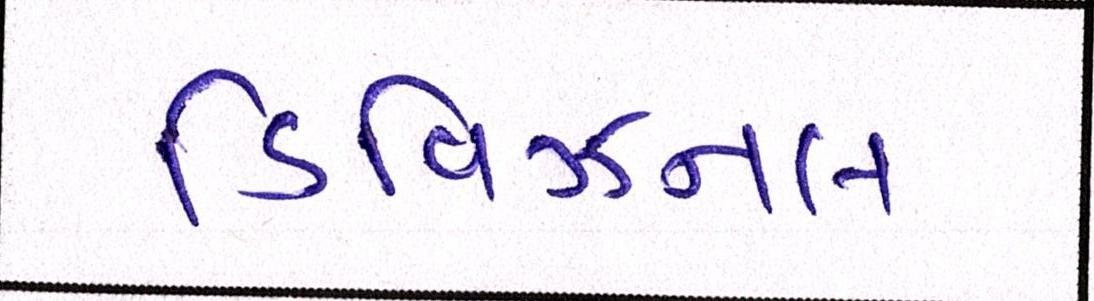 ડિવિઝનલ